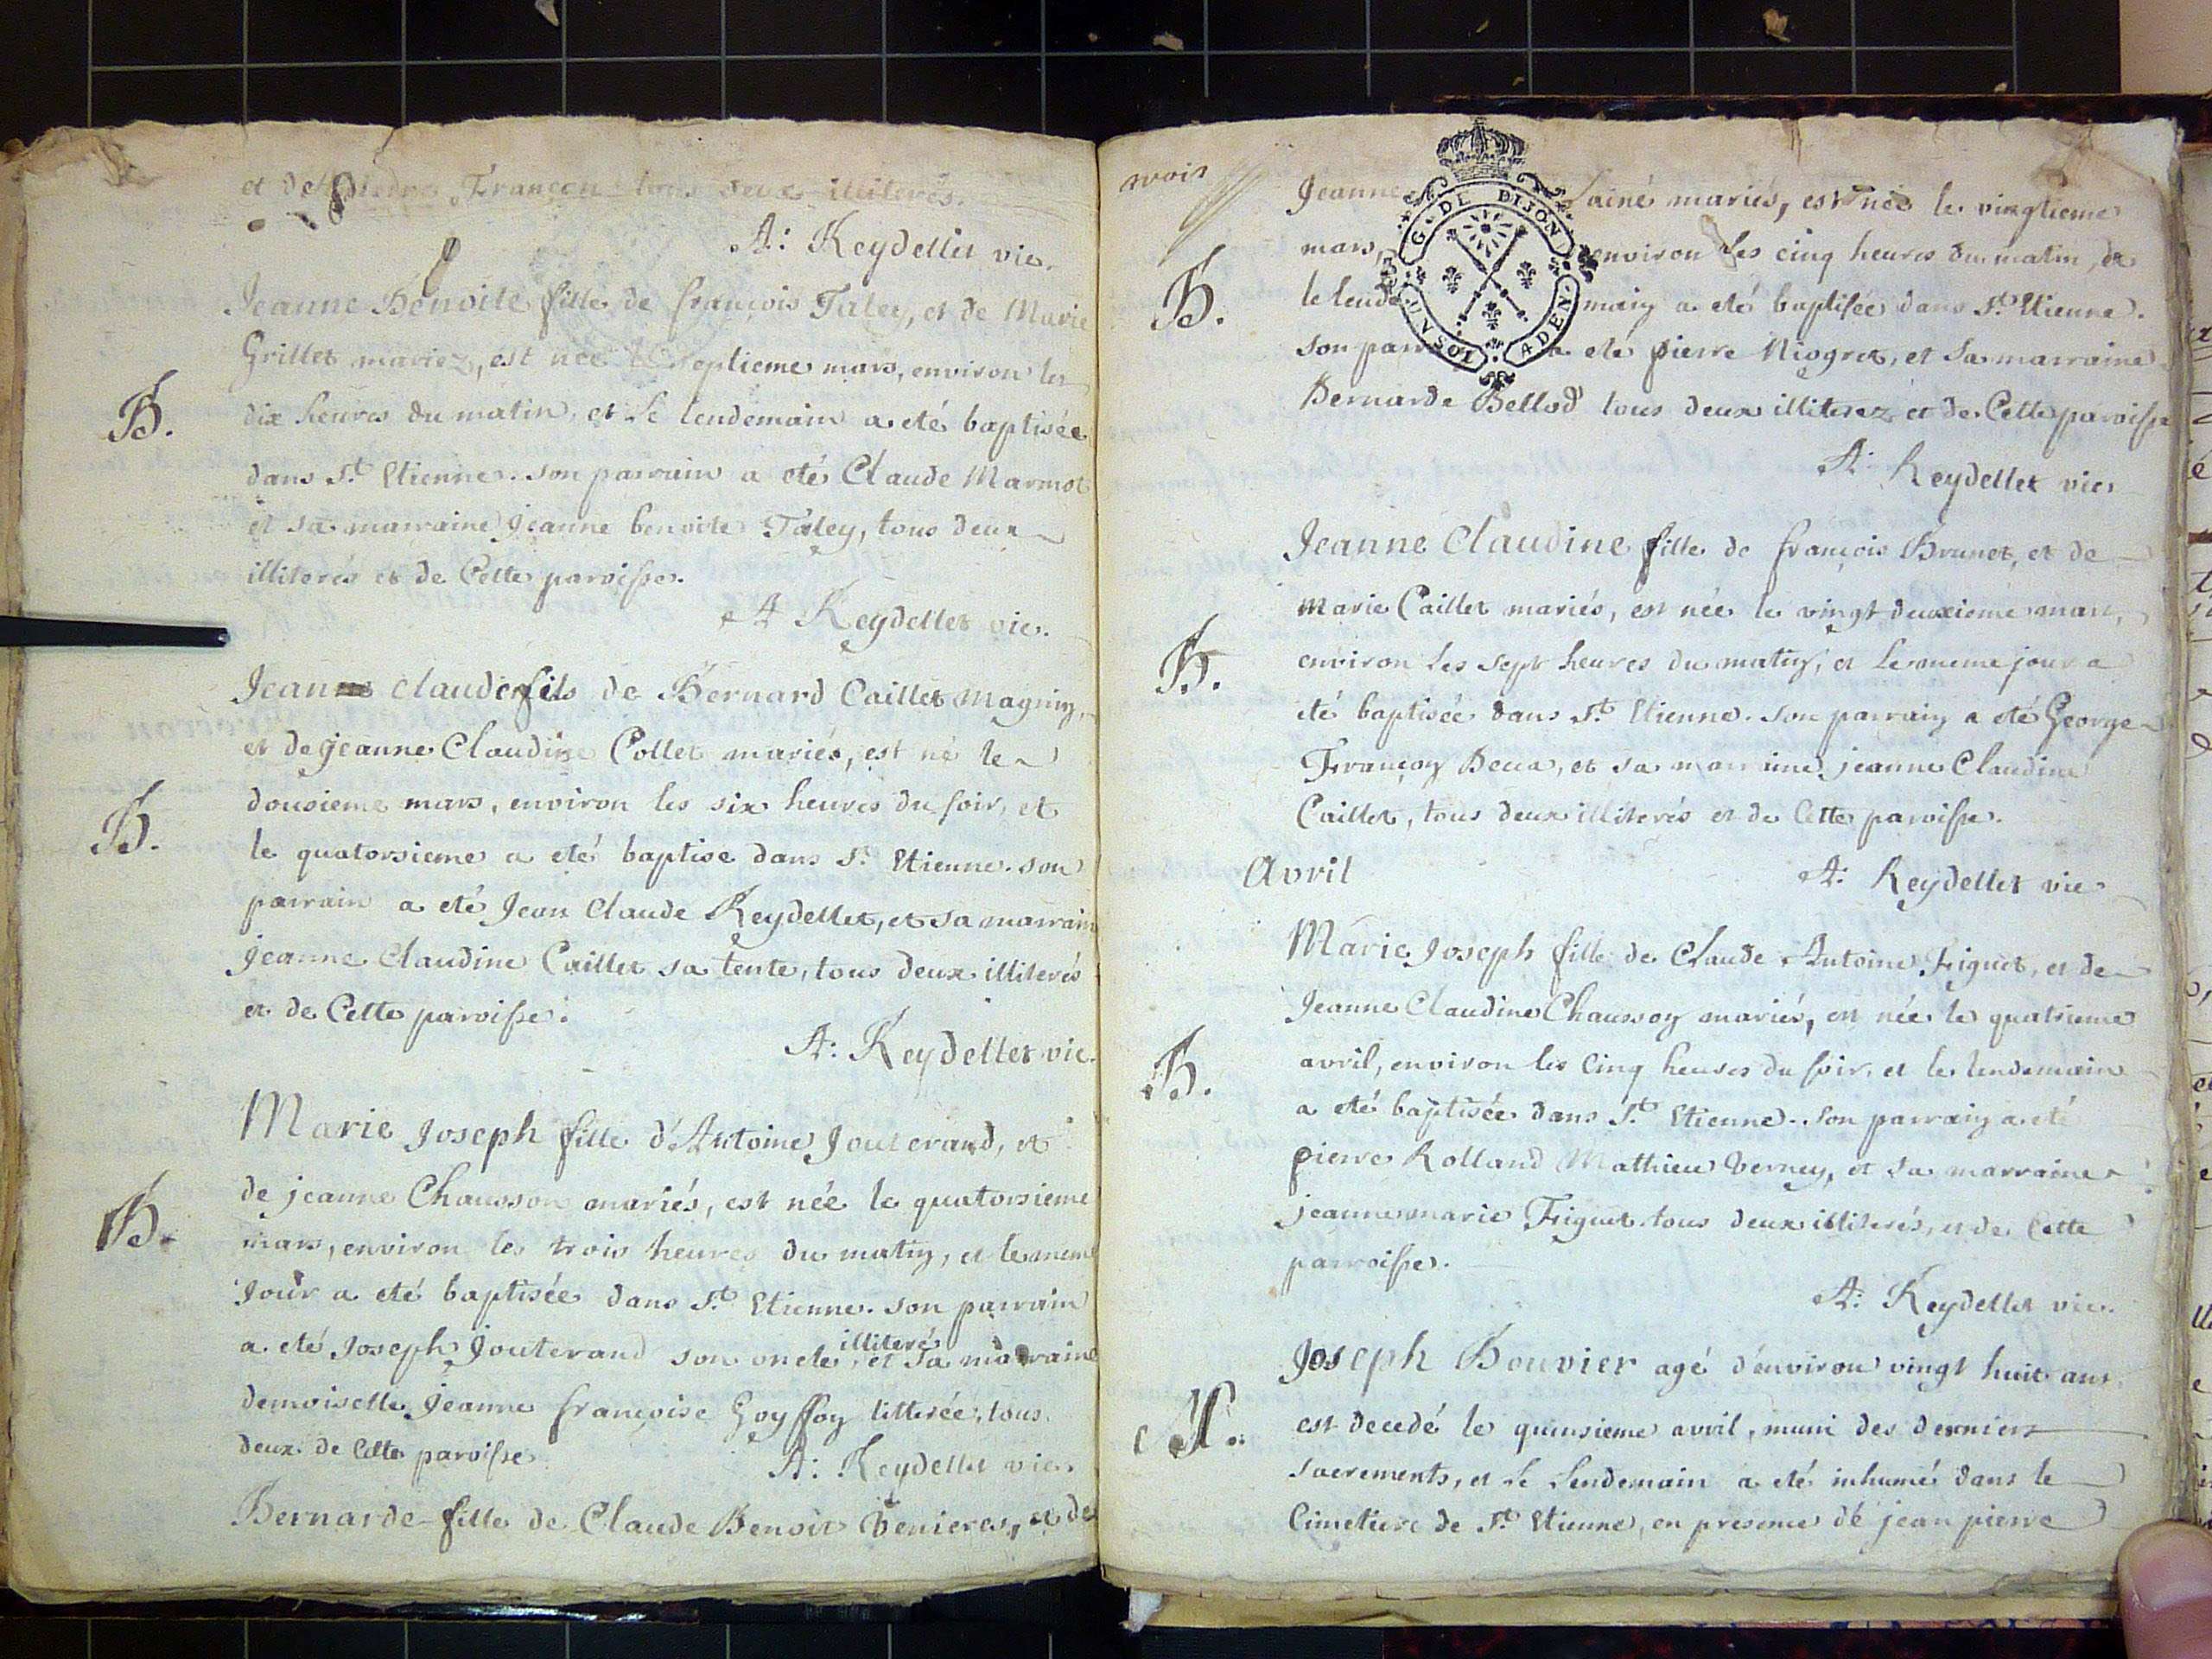 et de françoy tous deux illiterés.
A: Reydellet vic.
Jeanne Benoite fille de françois Taley, et de Marie
Grillet mariez, est née le septieme mars, environ les
B.
dix heures du matin, et le lendemain a eté baptisée
dans St. Etienne. son parrain a eté Claude Marmot
et sa marraine jeanne benoite Taley, tous deux
illiterés et de Cette paroisse.
A Reydellet vic.
Jean claude fils de Bernard Caillet Magnin,
et de jeanne Claudine Collet mariés, est né le
B.
dousieme mars, environ les six heures du soir, et
le quatorsieme a eté baptise dans St. Etienne. son
parrain a eté Jean Claude Reydellet, et sa marraine
jeanne Claudine Caillet sa tente, tous deux illiterés
et de Cette paroisse.
A: Reydellet vic.
Marie Joseph fille d'Antoine Jouterand, et
de jeanne Chausson mariés, est née le quatorsieme
B.
mars, environ les trois heures du matin, et le meme
Jour a eté baptisée dans St. Etienne. son parrain
a eté Joseph Jouterand son oncle illiteré, et sa marraine
demoiselle Jeanne françoise Goyffoy litterée, tous
deux de Cette paroisse
A: Reydellet vic.
Bernarde fille de Claude Benoit Venieres, et de
mois
G. DE DIJON
Jeanne Lainé mariés, est née le vingtieme
mars, environ les cinq heures du matin, et
B.
le lendemain a eté baptisée dans St. Etienne.
son parrain a eté pierre Niogret, et sa marraine
Bernarde Bellod tous deux illiterez et de Cette paroisse
A: Reydellet vic.
Jeanne Claudine fille de françois Brunet, et de
Marie Caillet mariés, est née le vingt deuxieme mars,
B.
environ les sept heures du matin, et le meme jour a
eté baptisée dans St. Etienne. son parrain a eté George
Françoy, et sa marraine jeanne Claudine
Caillet, tous deux illiterés et de Cette paroisse.
Avril
A: Reydellet vic
Marie Joseph fille de Claude Antoine Figuet, et de
Jeanne Claudine Chausson mariés, est née le quatrieme
B.
avril, environ les Cinq heures du soir, et le lendemain
a eté baptisée dans St. Etienne. son parrain a eté
pierre Rolland Mathieu Verney, et sa marraine
jeanne marie Figuet tous deux illiterés, et de Cette
parroisse.
A: Reydellet vic.
Joseph Bouvier agé d'environ vingt huit ans
est decedé le quinsieme avril, muni des derniers
sacrements, et le lendemain a eté inhumé dans le
Cimetiere de St. Etienne, en presence de jean pierre